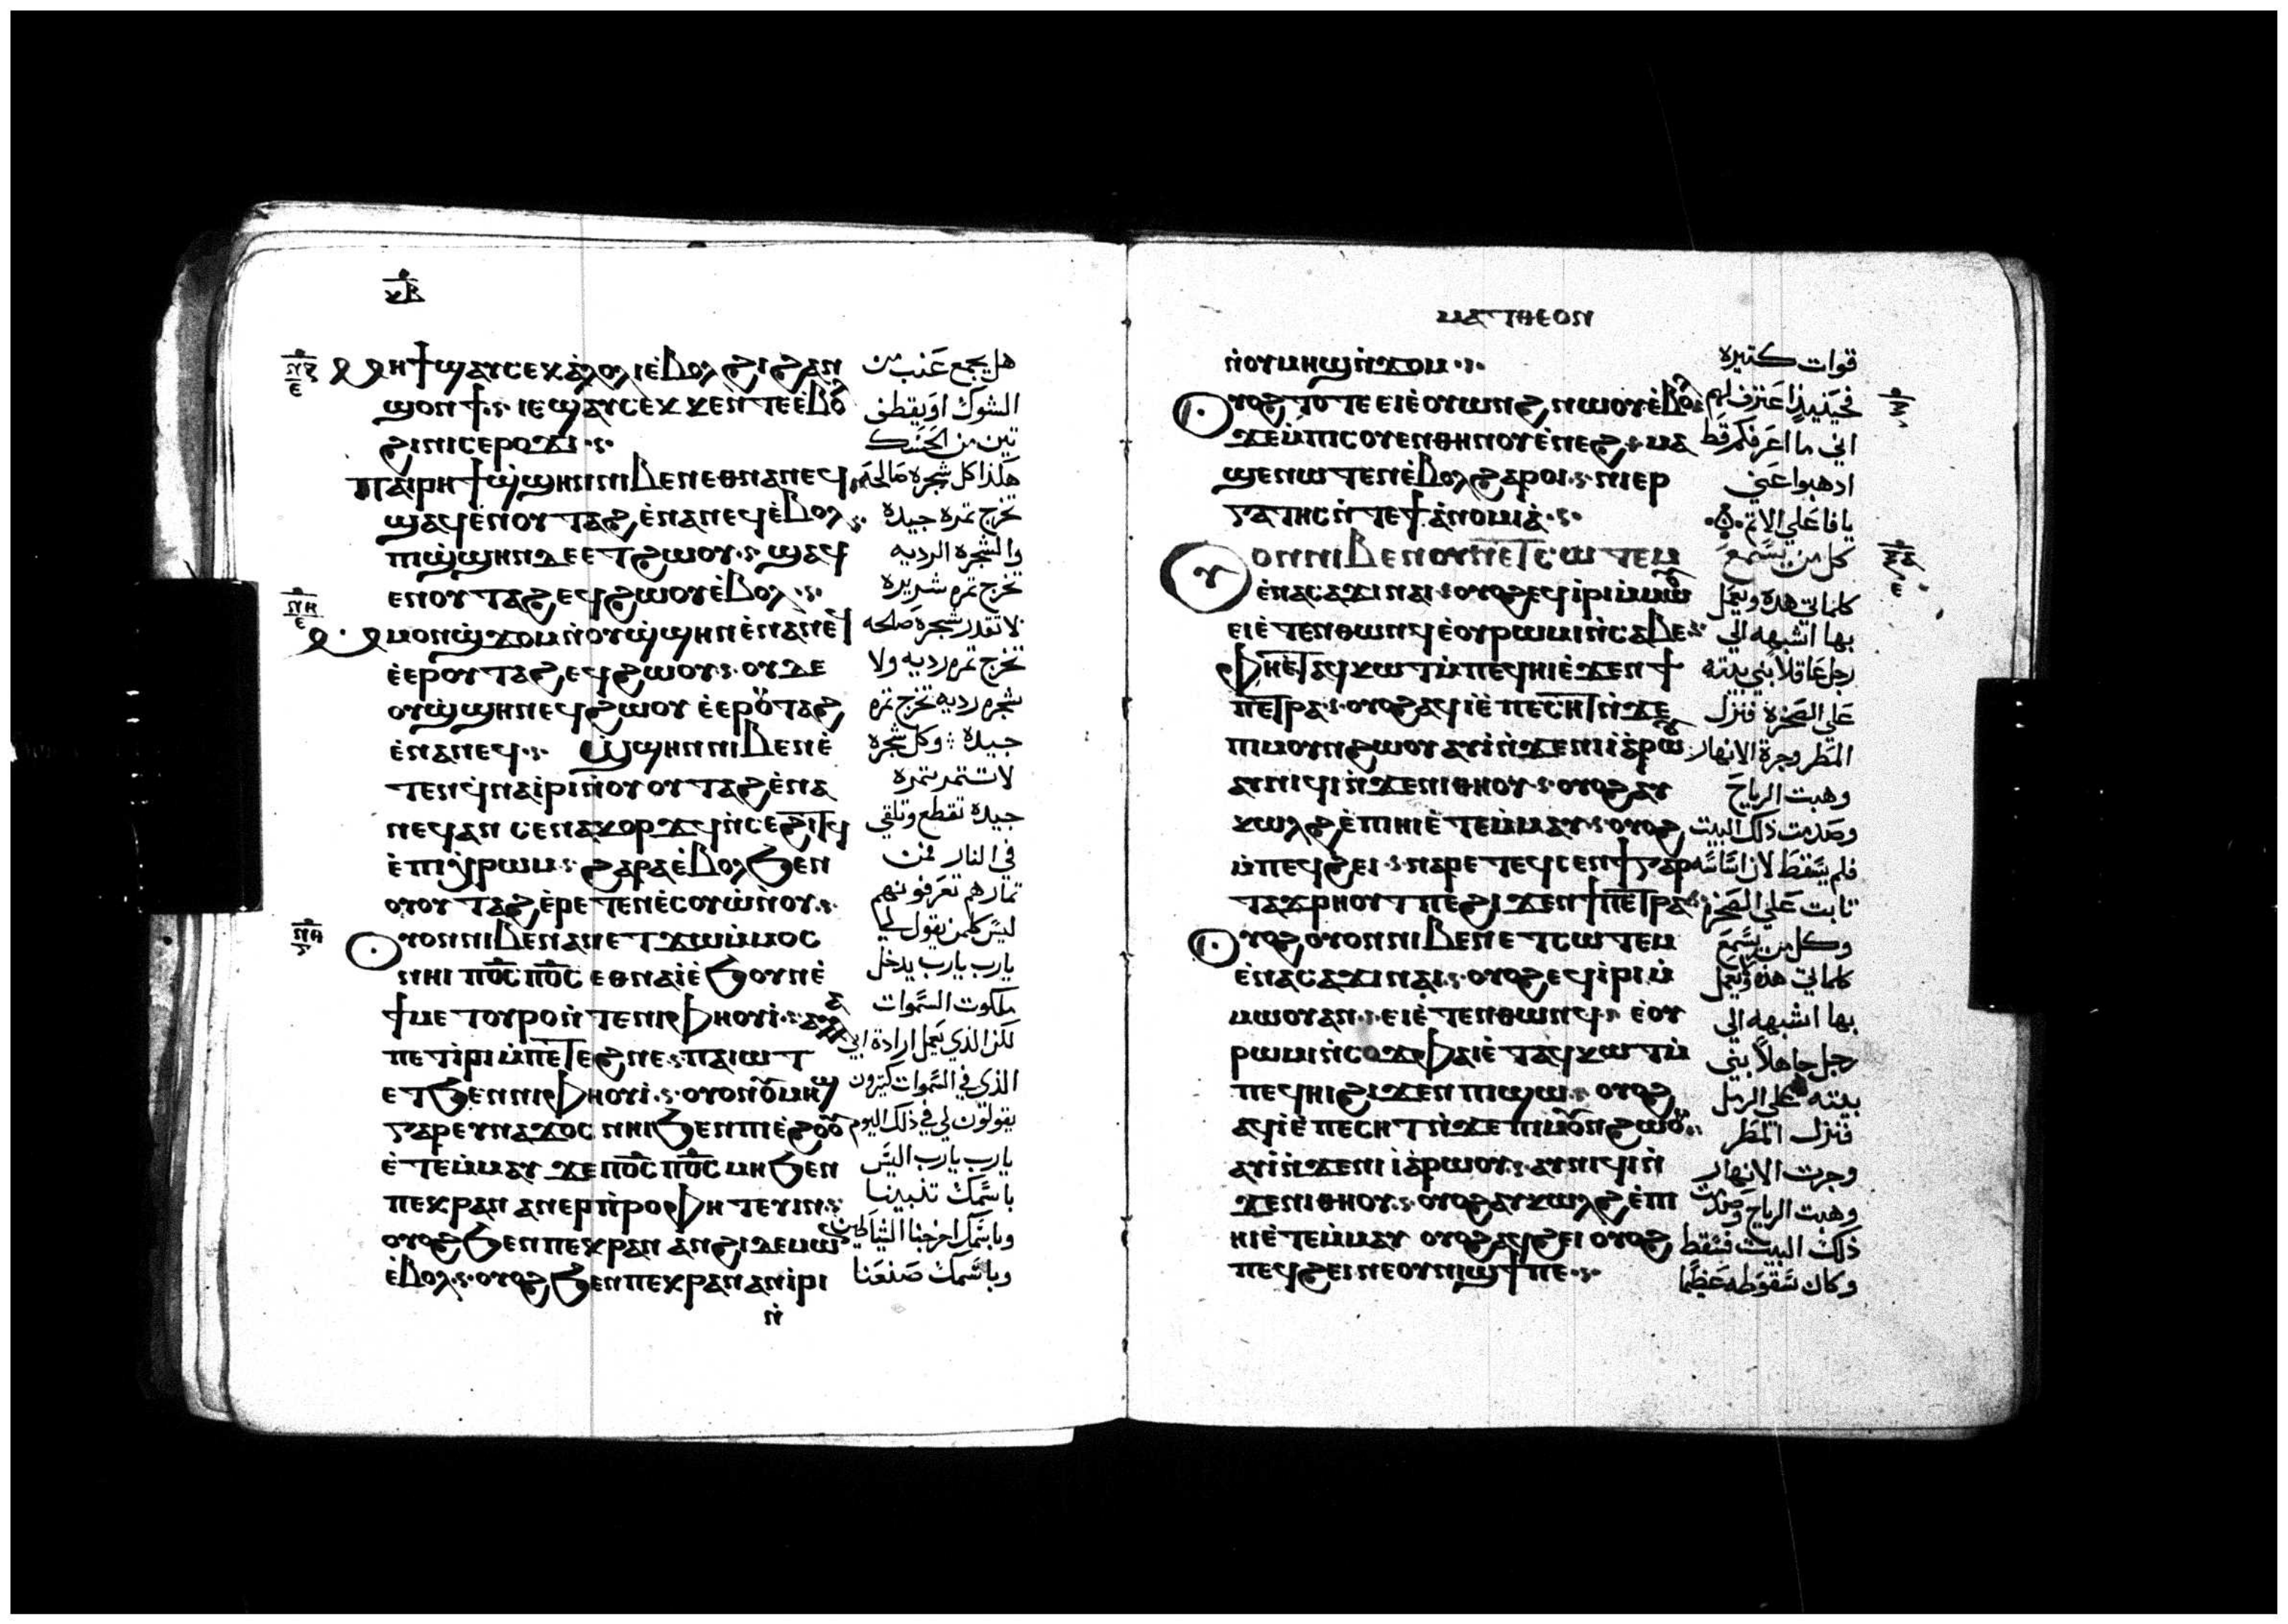 ⲕⲃ
ⲙⲏϯ ϣⲁⲩⲥⲉⲕ ⲁ̀ⲗⲟⲗⲓ ⲉ̀ⲃⲟⲗ ϩⲓ ϩⲁⲛ
ϣⲟⲛϯ ⲓⲉ ϣⲁⲩⲥⲉⲕ ⲕⲉⲛⲧⲉ ⲉ̀ⲃⲟ
ϩⲓ ⲛⲓⲥⲉⲣⲟϫⲓ
ⲡⲁⲓⲣⲏϯ ϣ̀ϣⲏⲛ ⲛⲓⲃⲉⲛ ⲉⲑⲛⲁⲛⲉϥ
ϣⲁϥⲉ̀ⲛ ⲟⲩⲧⲁϩ ⲉ̀ⲛⲁⲛⲉϥ ⲉ̀ⲃⲟⲗ
ⲡⲓϣ̀ϣⲏⲛ ⲇⲉ ⲉⲧϩⲱⲟⲩ ϣⲁϥ
ⲉⲛ ⲟⲩⲧⲁϩ ⲉϥϩⲱⲟⲩ ⲉ̀ⲃⲟⲗ
ⲙⲙⲟⲛ ϣ̀ϫⲟⲙ ⲛ̀ⲟⲩϣ̀ϣⲏⲛ ⲉ̀ⲛⲁⲛⲉϥ
ⲉ̀ⲉⲣ ⲟⲩⲧⲁϩ ⲉϥϩⲱⲟⲩ ⲟⲩⲇⲉ
ⲟⲩϣ̀ϣⲏⲛ ⲉϥϩⲱⲟⲩ ⲉ̀ⲉⲣ ⲟⲩⲧⲁϩ
ⲉ̀ⲛⲁⲛⲉϥ ϣ̀ϣⲏⲛ ⲛⲓⲃⲉⲛ ⲉ̀
ⲧⲉⲛϥⲛⲁⲓ̀ⲣⲓ ⲛ̀ⲟⲩⲟⲩⲧⲁϩ ⲉ̀ⲛⲁ
ⲛⲉϥ ⲁⲛ ⲥⲉⲛⲁⲕⲟⲣϫϥ ⲛ̀ⲥⲉϩⲓⲧϥ
ⲉ̀ⲡⲓⲭ̀ⲣⲱⲙ ϩⲁⲣⲁ ⲉ̀ⲃⲟⲗ ϧⲉⲛ
ⲟⲩⲟⲩⲧⲁϩ ⲉ̀ⲣⲉⲧⲉⲛⲉ̀ⲥⲟⲩⲱ̀ⲛⲟⲩ
ⲟⲩⲟⲛ ⲛⲓⲃⲉⲛ ⲁⲛ ⲉⲧϫⲱ ⲙ̀ⲙⲟⲥ
ⲛⲏⲓ ⲡⲟ̅ⲥ̅ ⲡⲟ̅ⲥ̅ ⲉⲑⲛⲁⲓ̀ ⲉ̀ϧⲟⲩⲛ ⲉ̀
ϯⲙⲉⲧⲟⲩⲣⲟ ⲛ̀ⲧⲉ ⲛⲓⲫⲏⲟⲩⲓ̀ ⲁⲗⲗⲁ
ⲡⲉⲧⲓ̀ⲣⲓ ⲙ̀ⲡⲉⲧⲉϩⲛⲉ ⲡⲁⲓⲱⲧ
ⲉⲧϧⲉⲛ ⲛⲓⲫⲏⲟⲩⲓ̀ ⲟⲩⲟⲛ ⲟⲩⲙⲏϣ
ⲅⲁⲣ ⲉⲩⲛⲁϫⲟⲥ ⲛⲏⲓ ϧⲉⲛ ⲡⲓⲉ̀ϩⲟⲟⲩ
ⲉ̀ⲧⲉⲙ̀ⲙⲁⲩ ϫⲉ ⲡⲟ̅ⲥ̅ ⲡⲟ̅ⲥ̅ ⲙⲏ ϧⲉⲛ
ⲡⲉⲕⲣⲁⲛ ⲁⲛⲉⲣⲡ̀ⲣⲟⲫⲏⲧⲉⲩⲓⲛ
ⲟⲩⲟϩ ϧⲉⲛ ⲡⲉⲕⲣⲁⲛ ⲁⲛϩⲓ ⲇⲉⲙⲱ
ⲉ̀ⲃⲟⲗ ⲟⲩⲟϩ ϧⲉⲛ ⲡⲉⲕⲣⲁⲛ ⲁⲛⲓ̀ⲣⲓ
ⲛ̀
هل يجمع عنب من
الشوك او يقطف
تين من الحسك
هكذا كل شجره صالحه
تخرج تمره جيده
والشجره الرديه
تخرج تمره شريره
لا تقدر شجره صالحه
تخرج تمره رديه ولا
شجره رديه تخرج تمره
جيده وكل شجره
لا تتمر تمره
جيده تقطع وتلقي
في النار فمن
تمارهم تعرفونهم
ليس كلمن يقول لي
يارب يارب يدخل
ملكوت السموات
لكن الذي يعمل ارادة ابي
الذي في السموات كتيرون
يقولون لي في ذلك اليوم
يارب يارب اليس
باسمك تنبينا
وباسمك اخرجنا الشياطين
وباسمك صنعنا
ⲙⲁⲧⲑⲉⲟⲛ
ⲛ̀ⲟⲩⲙⲏϣ ⲛ̀ϫⲟⲙ
ⲟⲩⲟϩ ⲧⲟⲧⲉ ⲉⲓⲉ̀ⲟⲩⲱⲛϩ ⲛⲱⲟⲩ ⲉ̀ⲃⲟⲗ
ϫⲉ ⲙ̀ⲡⲓⲥⲟⲩⲉⲛ ⲑⲏⲛⲟⲩ ⲉ̀ⲛⲉϩ ⲙⲁ
ϣⲉⲛⲱⲧⲉⲛ ⲉ̀ⲃⲟⲗ ϩⲁⲣⲟⲓ ⲛⲓⲉⲣ
ⲅⲁⲧⲏⲥ ⲛ̀ⲧⲉ ϯⲁ̀ⲛⲟⲙⲓⲁ̀
ⲟⲩⲟⲛ ⲛⲓⲃⲉⲛ ⲟⲩⲛ ⲉⲧⲥⲱⲧⲉⲙ
ⲉ̀ⲛⲁⲥⲁϫⲓ ⲛⲁⲓ ⲟⲩⲟϩ ⲉϥⲓ̀ⲣⲓ ⲙ̀ⲙⲱⲟⲩ
ⲉⲓⲉ̀ⲧⲉⲛⲑⲱⲛϥ ⲉ̀ⲟⲩⲣⲱⲙⲓ ⲛ̀ⲥⲁⲃⲉ
ⲫⲏⲉⲧⲁϥⲕⲱⲧ ⲙ̀ⲡⲉϥⲏⲓ ⲉ̀ϫⲉⲛ ϯ
ⲡⲉⲧⲣⲁ ⲟⲩⲟϩ ⲁϥⲓ̀ ⲉ̀ⲡⲉⲥⲏⲧ ⲛ̀ϫⲉ
ⲡⲓⲙⲟⲩⲛϩⲱⲟⲩ ⲁⲩⲓ̀ ⲛ̀ϫⲉ ⲛⲓⲓ̀ⲁⲣⲱⲟⲩ
ⲁⲩⲛⲓϥⲓ ⲛ̀ϫⲉ ⲛⲓⲑⲏⲟⲩ ⲟⲩⲟϩ ⲁⲩ
ⲕⲱⲗϩ ⲉ̀ⲡⲓⲏⲓ ⲉ̀ⲧⲉⲙ̀ⲙⲁⲩ ⲟⲩⲟϩ
ⲙ̀ⲡⲉϥϩⲉⲓ ⲛⲁⲣⲉ ⲧⲉϥⲥⲉⲛϯ ⲅⲁⲣ
ⲧⲁϫⲣⲏⲟⲩⲧ ⲡⲉ ϩⲓϫⲉⲛ ϯⲡⲉⲧⲣⲁ
ⲟⲩⲟϩ ⲟⲩⲟⲛ ⲛⲓⲃⲉⲛ ⲉⲧⲥⲱⲧⲉⲙ
ⲉ̀ⲛⲁⲥⲁϫⲓ ⲛⲁⲓ ⲟⲩⲟϩ ⲉϥⲓ̀ⲣⲓ ⲙ̀
ⲙⲱⲟⲩ ⲁⲛ ⲉⲓⲉ̀ⲧⲉⲛⲑⲱⲛϥ ⲉ̀ⲟⲩ
ⲣⲱⲙⲓ ⲛ̀ⲥⲟϫ ⲫⲁⲓ ⲉ̀ⲧⲁϥⲕⲱⲧ ⲙ̀
ⲡⲉϥⲏⲓ ϩⲓϫⲉⲛ ⲡⲓϣⲱ ⲟⲩⲟϩ
ⲁϥⲓ̀ ⲉ̀ⲡⲉⲥⲏⲧ ⲛ̀ϫⲉ ⲡⲓⲙⲟⲩⲛϩⲱⲟⲩ
ⲁⲩⲓ̀ ⲛ̀ϫⲉ ⲛⲓⲓ̀ⲁⲣⲱⲟⲩ ⲁⲩⲛⲓϥⲓ ⲛ̀
ϫⲉ ⲛⲓⲑⲏⲟⲩ ⲟⲩⲟϩ ⲁⲩⲕⲱⲗϩ ⲉ̀ⲡⲓ
ⲏⲓ ⲉ̀ⲧⲉⲙ̀ⲙⲁⲩ ⲟⲩⲟϩ ⲁϥϩⲉⲓ ⲟⲩⲟϩ
ⲡⲉϥϩⲉⲓ ⲛⲉ ⲟⲩⲛⲓϣϯ ⲡⲉ
قوات كتيره
فحينيذ اعترف لهم
اني ما اعرفكم قط
ادهبوا عني
يا فاعلي الاتم
كل من يسمع
كلماتي هده ويعمل
بها اشبهه الي
رجل عاقلا بني بيته
علي الصخره فنزل
المطر وجرة الانهار
وهبت الرياح
وصدمت ذلك البيت
فلم يسقط لان اساسه
تابت علي الصخره
وكل من يسمع
كلماتي هذه ويعمل
بها اشبهه الي
رجل جاهلا بني
بيته علي الرمل
فنزل المطر
وجرت الانهار
وهبت الرياح وصدمت
ذلك البيت فسقط
وكان سقوطه عظيما